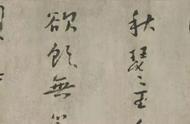 秋瑟〻主
欲飲無